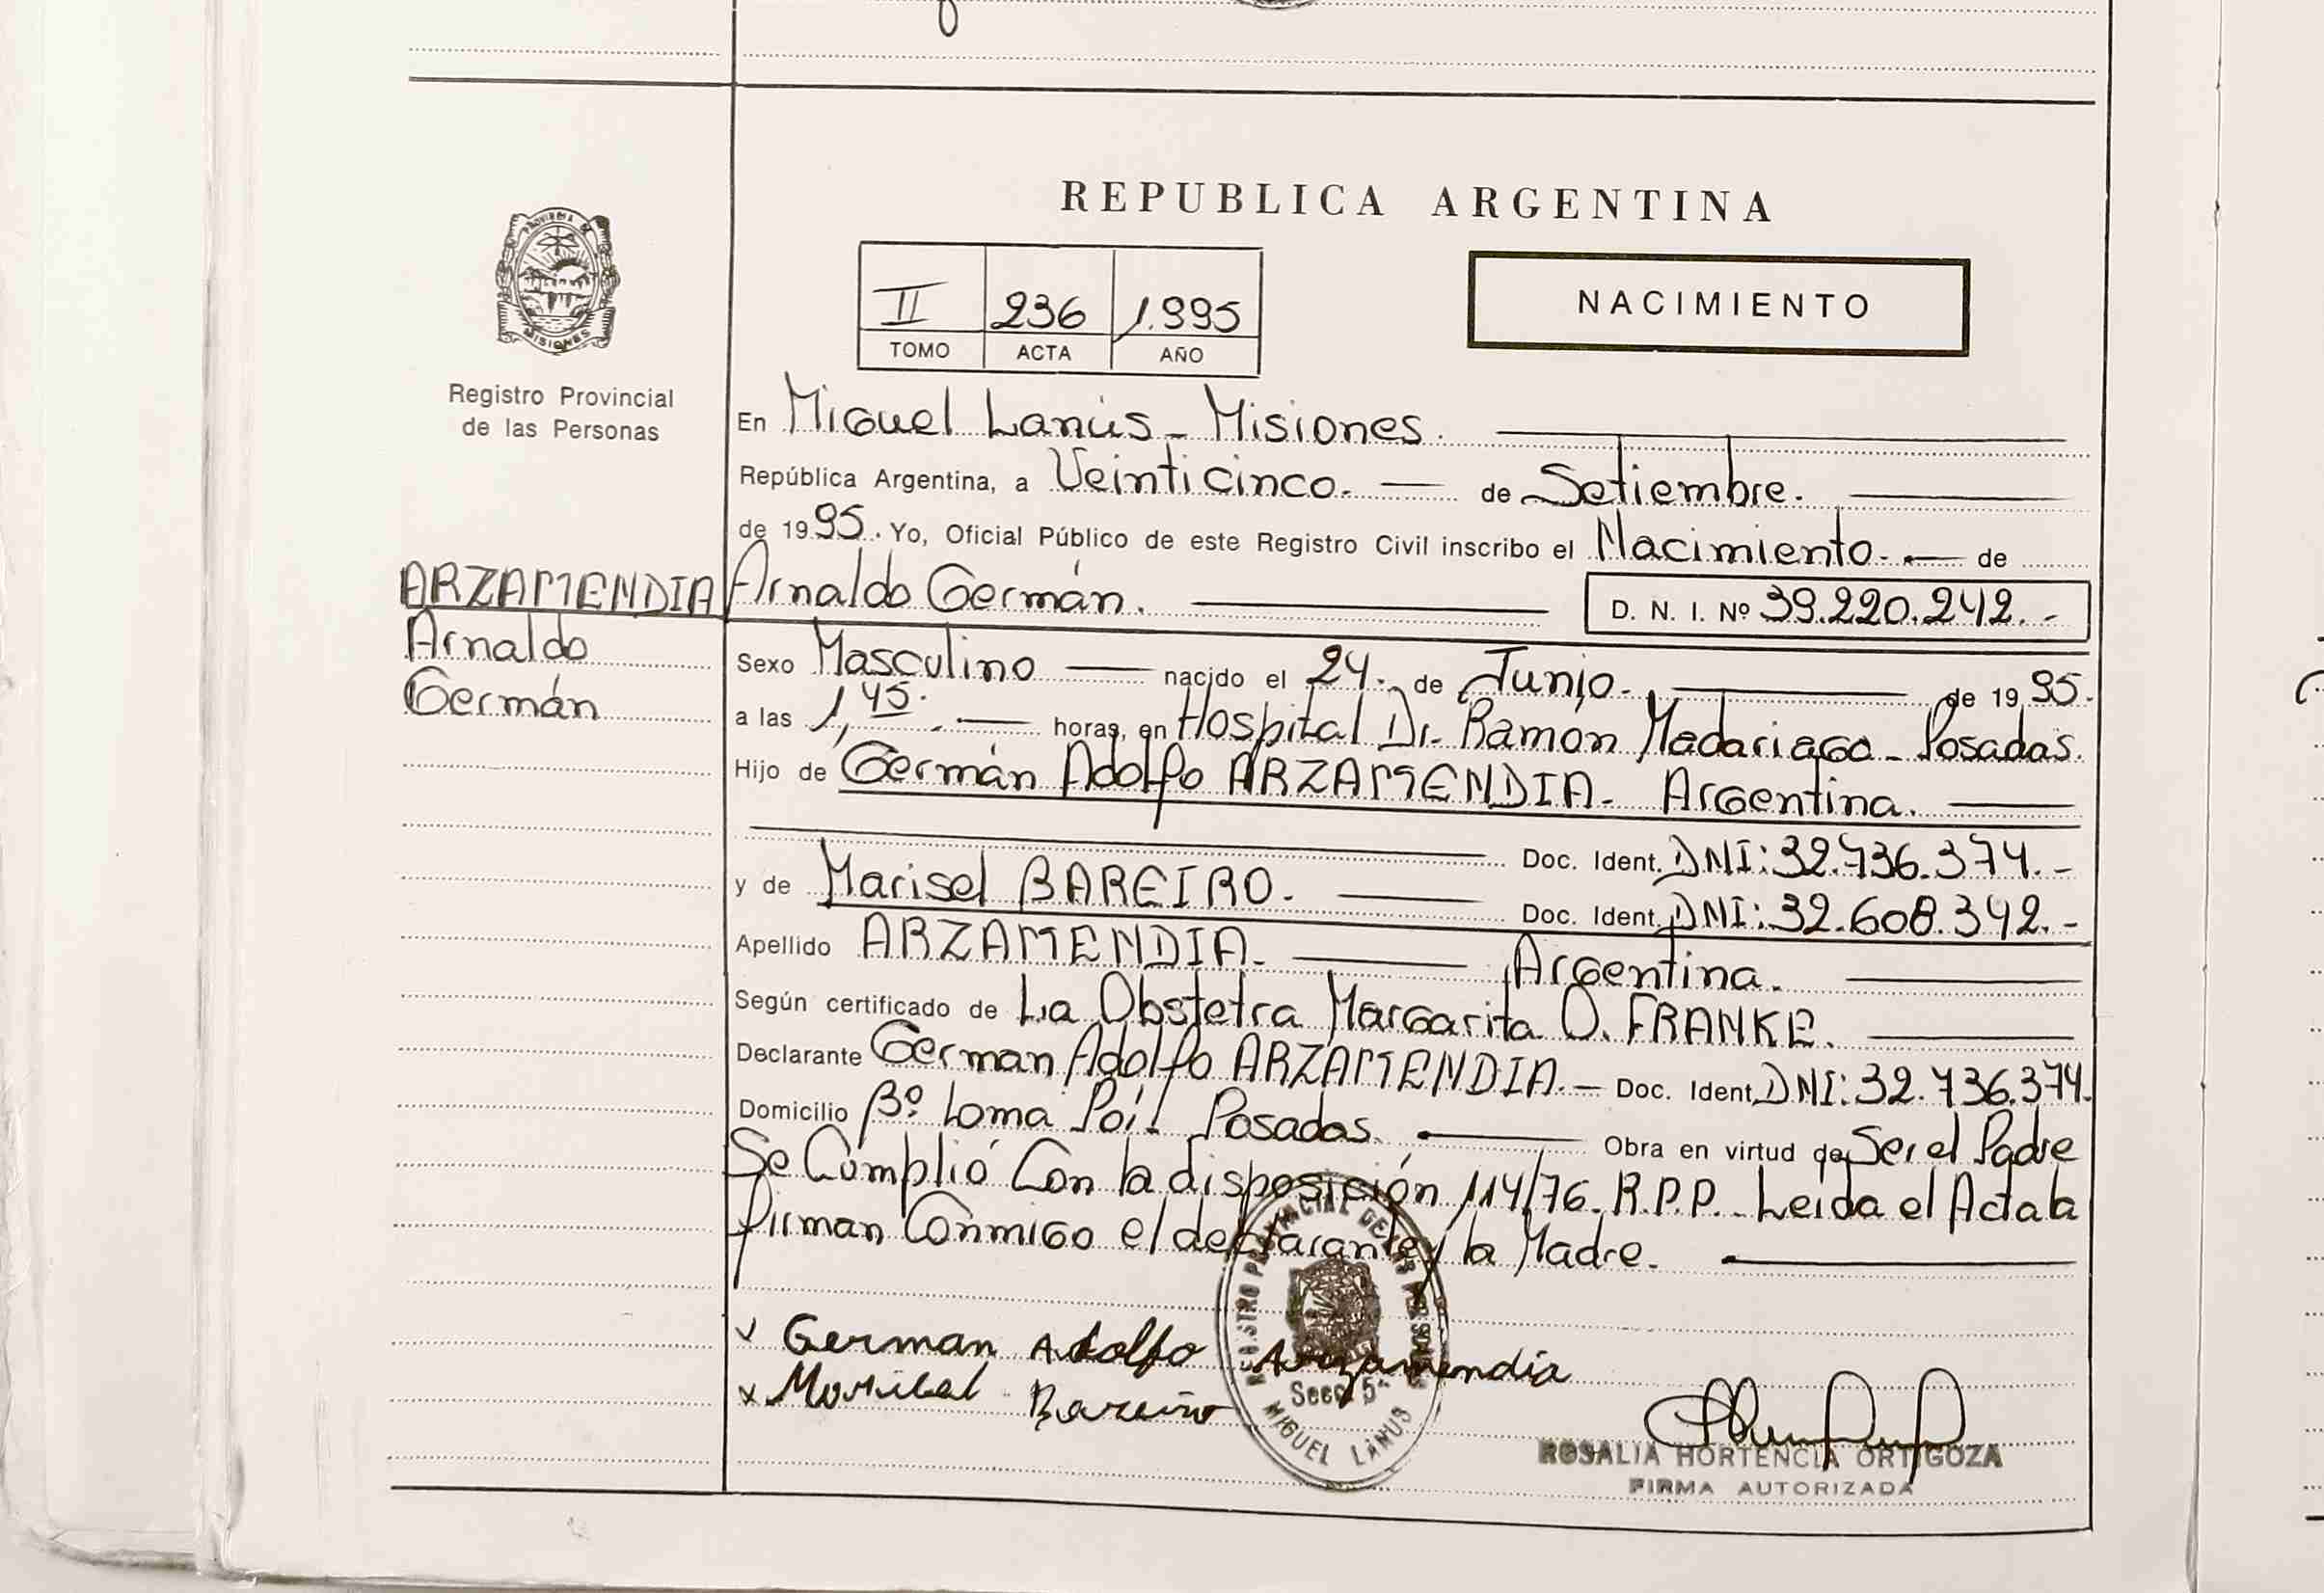 REPUBLICA ARGENTINA
PROVINCIA DE MISIONES
Registro Provincial
de las Personas
II 236 1.995
TOMO ACTA AÑO
NACIMIENTO
En Miguel Lanús - Misiones.
República Argentina, a Veinticinco. de Setiembre.
de 1995. Yo, Oficial Público de este Registro Civil inscribo el Nacimiento. de
ARZAMENDIA
Arnaldo
Germán
Arnaldo Germán. D. N. I. Nº 39.220.242.-
Sexo Masculino nacido el 24. de Junio. de 1995.
a las 1,45. horas, en Hospital Dr. Ramón Madariaga - Posadas.
Hijo de Germán Adolfo ARZAMENDIA. Argentina.
Doc. Ident. DNI: 32.736.374.-
y de Marisel BAREIRO.
Doc. Ident. DNI: 32.608.342.-
Apellido ARZAMENDIA. Argentina.
Según certificado de La Obstetra Margarita O. FRANKE.
Declarante German Adolfo ARZAMENDIA. - Doc. Ident. DNI: 32.736.374.
Domicilio Bº Loma Poí! Posadas. Obra en virtud de Ser el Padre
Se Cumplió Con la disposición 114/76. R.P.P. - Leída el Acta la
firman Conmigo el declarante y la Madre.
x German Adolfo Arzamendia
x Bareiro
REGISTRO PROVINCIAL DE LAS PERSONAS
Secc 5ª
MIGUEL LANUS
ROSALIA HORTENCIA ORTIGOZA
FIRMA AUTORIZADA